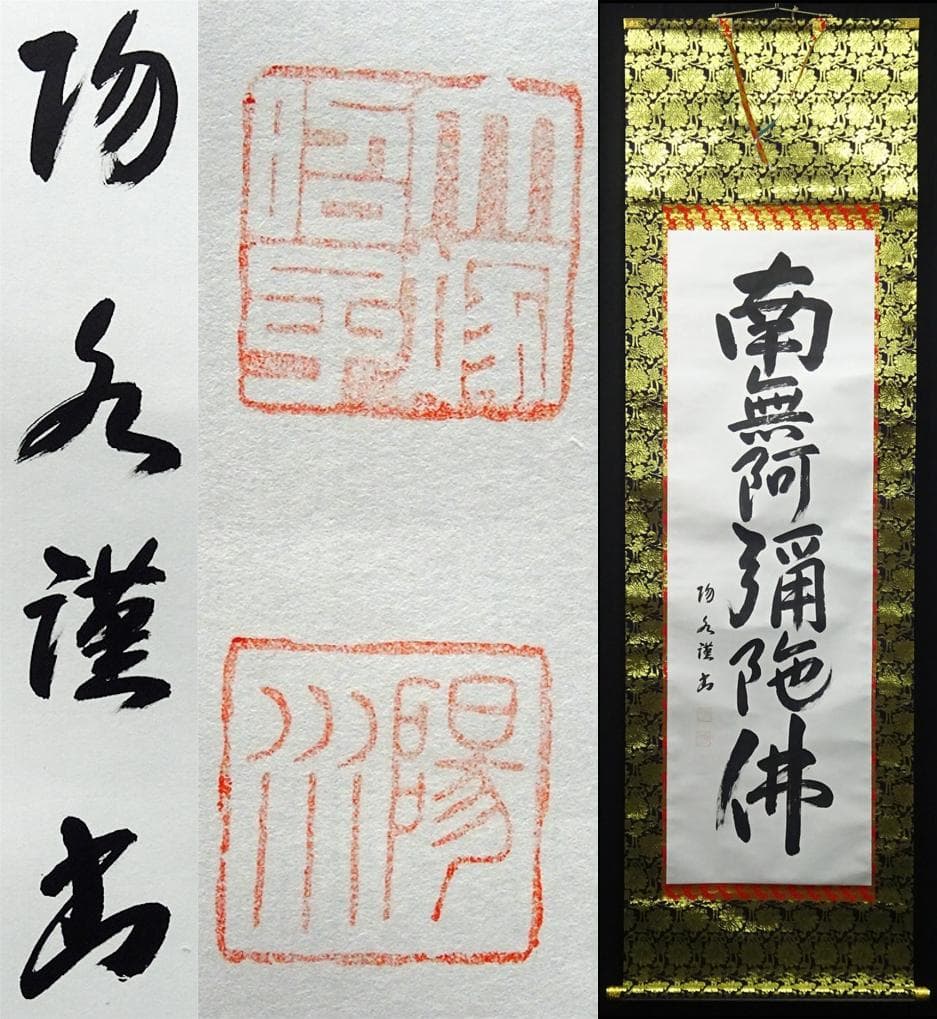 陽謹書
大塚
陽川
南無阿彌陀佛
陽謹書